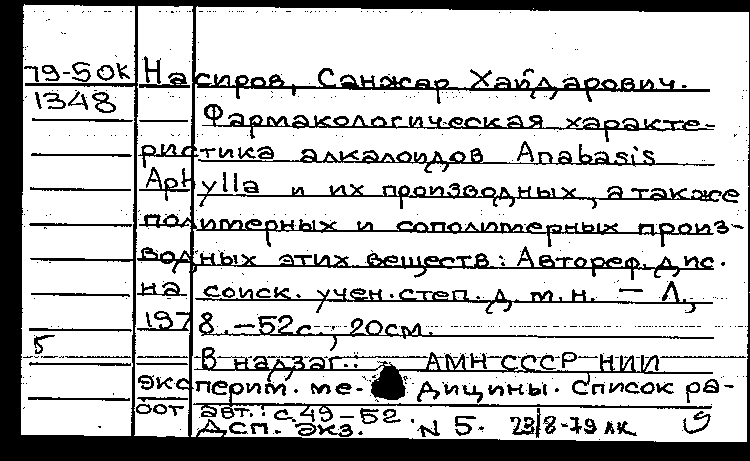 79-50к Насиров, Санжар Хайдарович.
1348 Фармакологическая характе-
ристика алкалоидов Anabasis
Aphylla и их производных, а также
полимерных и сополимерных произ-
водных этих веществ: Автореф. дис.
на соиск. учен. степ. д. м. н. – Л.,
1978. – 52 с.; 20 см.
5
В надзаг.: АМН СССР, НИИ
эксперим. ме- дицины. Список ра-
бот авт.: с. 49-52.
Дсп. Экз. N 5. 23/8-79 лк